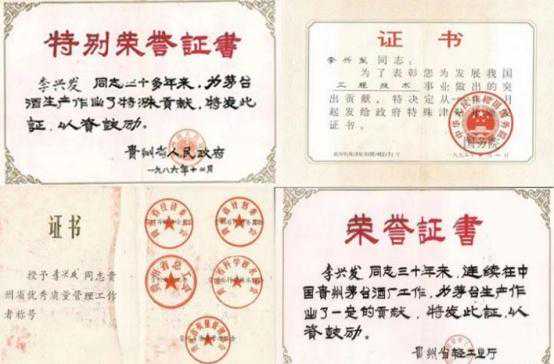 特别荣誉証書
李兴发 同志二十多年来，为茅台
酒生产作出了特殊贡献，特发此
証，以资鼓励。
贵州省人民政府
一九八六年十一月
证书
李兴发同志：
为了表彰您为发展我国
工程技术 事业做出的突
出贡献，特决定从
起发给政府特殊津
证书。
证书
授予李兴发同志贵
州省优秀质量管理工作
者称号
荣誉証書
李兴发 同志三十年来，连续在中
国贵州茅台酒厂工作，为茅台生产作
出了一定的贡献，特发此証，以
资鼓励。
贵州省轻工业厅